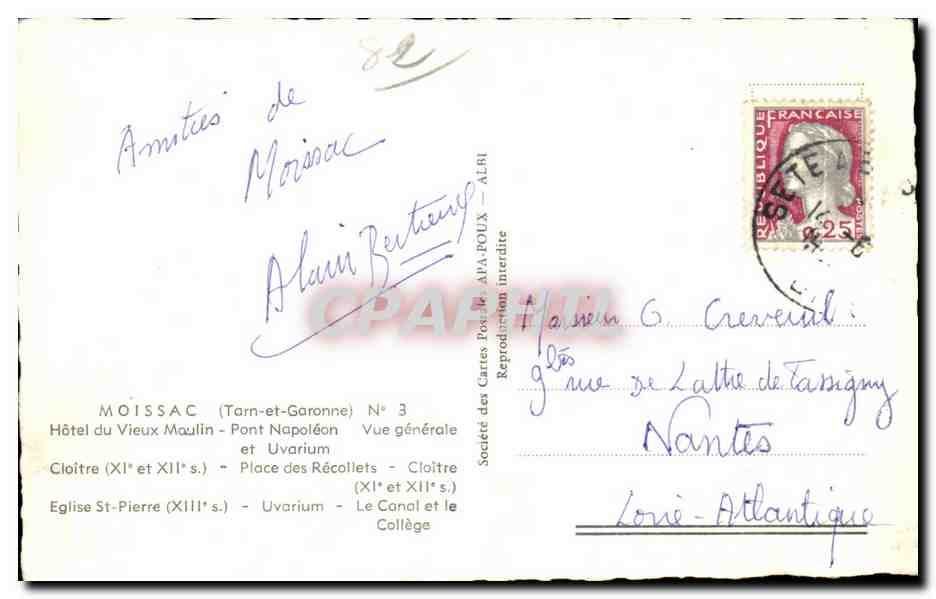 8e
Amitiés de
Moissac
Alain Bertrand
MOISSAC (Tarn-et-Garonne) N° 3
Hôtel du Vieux Moulin - Pont Napoléon Vue générale
et Uvarium
Cloître (XI° et XII° s.) - Place des Récollets - Cloître
(XI° et XII° s.)
Eglise St-Pierre (XIII° s.) - Uvarium - Le Canal et le
Collège
Société des Cartes Postales APA-POUX - ALBI
Reproduction interdite
REPUBLIQUE FRANÇAISE
POSTES
0,25
SETE
CPAPHIL
Monsieur G. Creveuil
9 bis rue De Lattre de Tassigny
Nantes
Loire-Atlantique